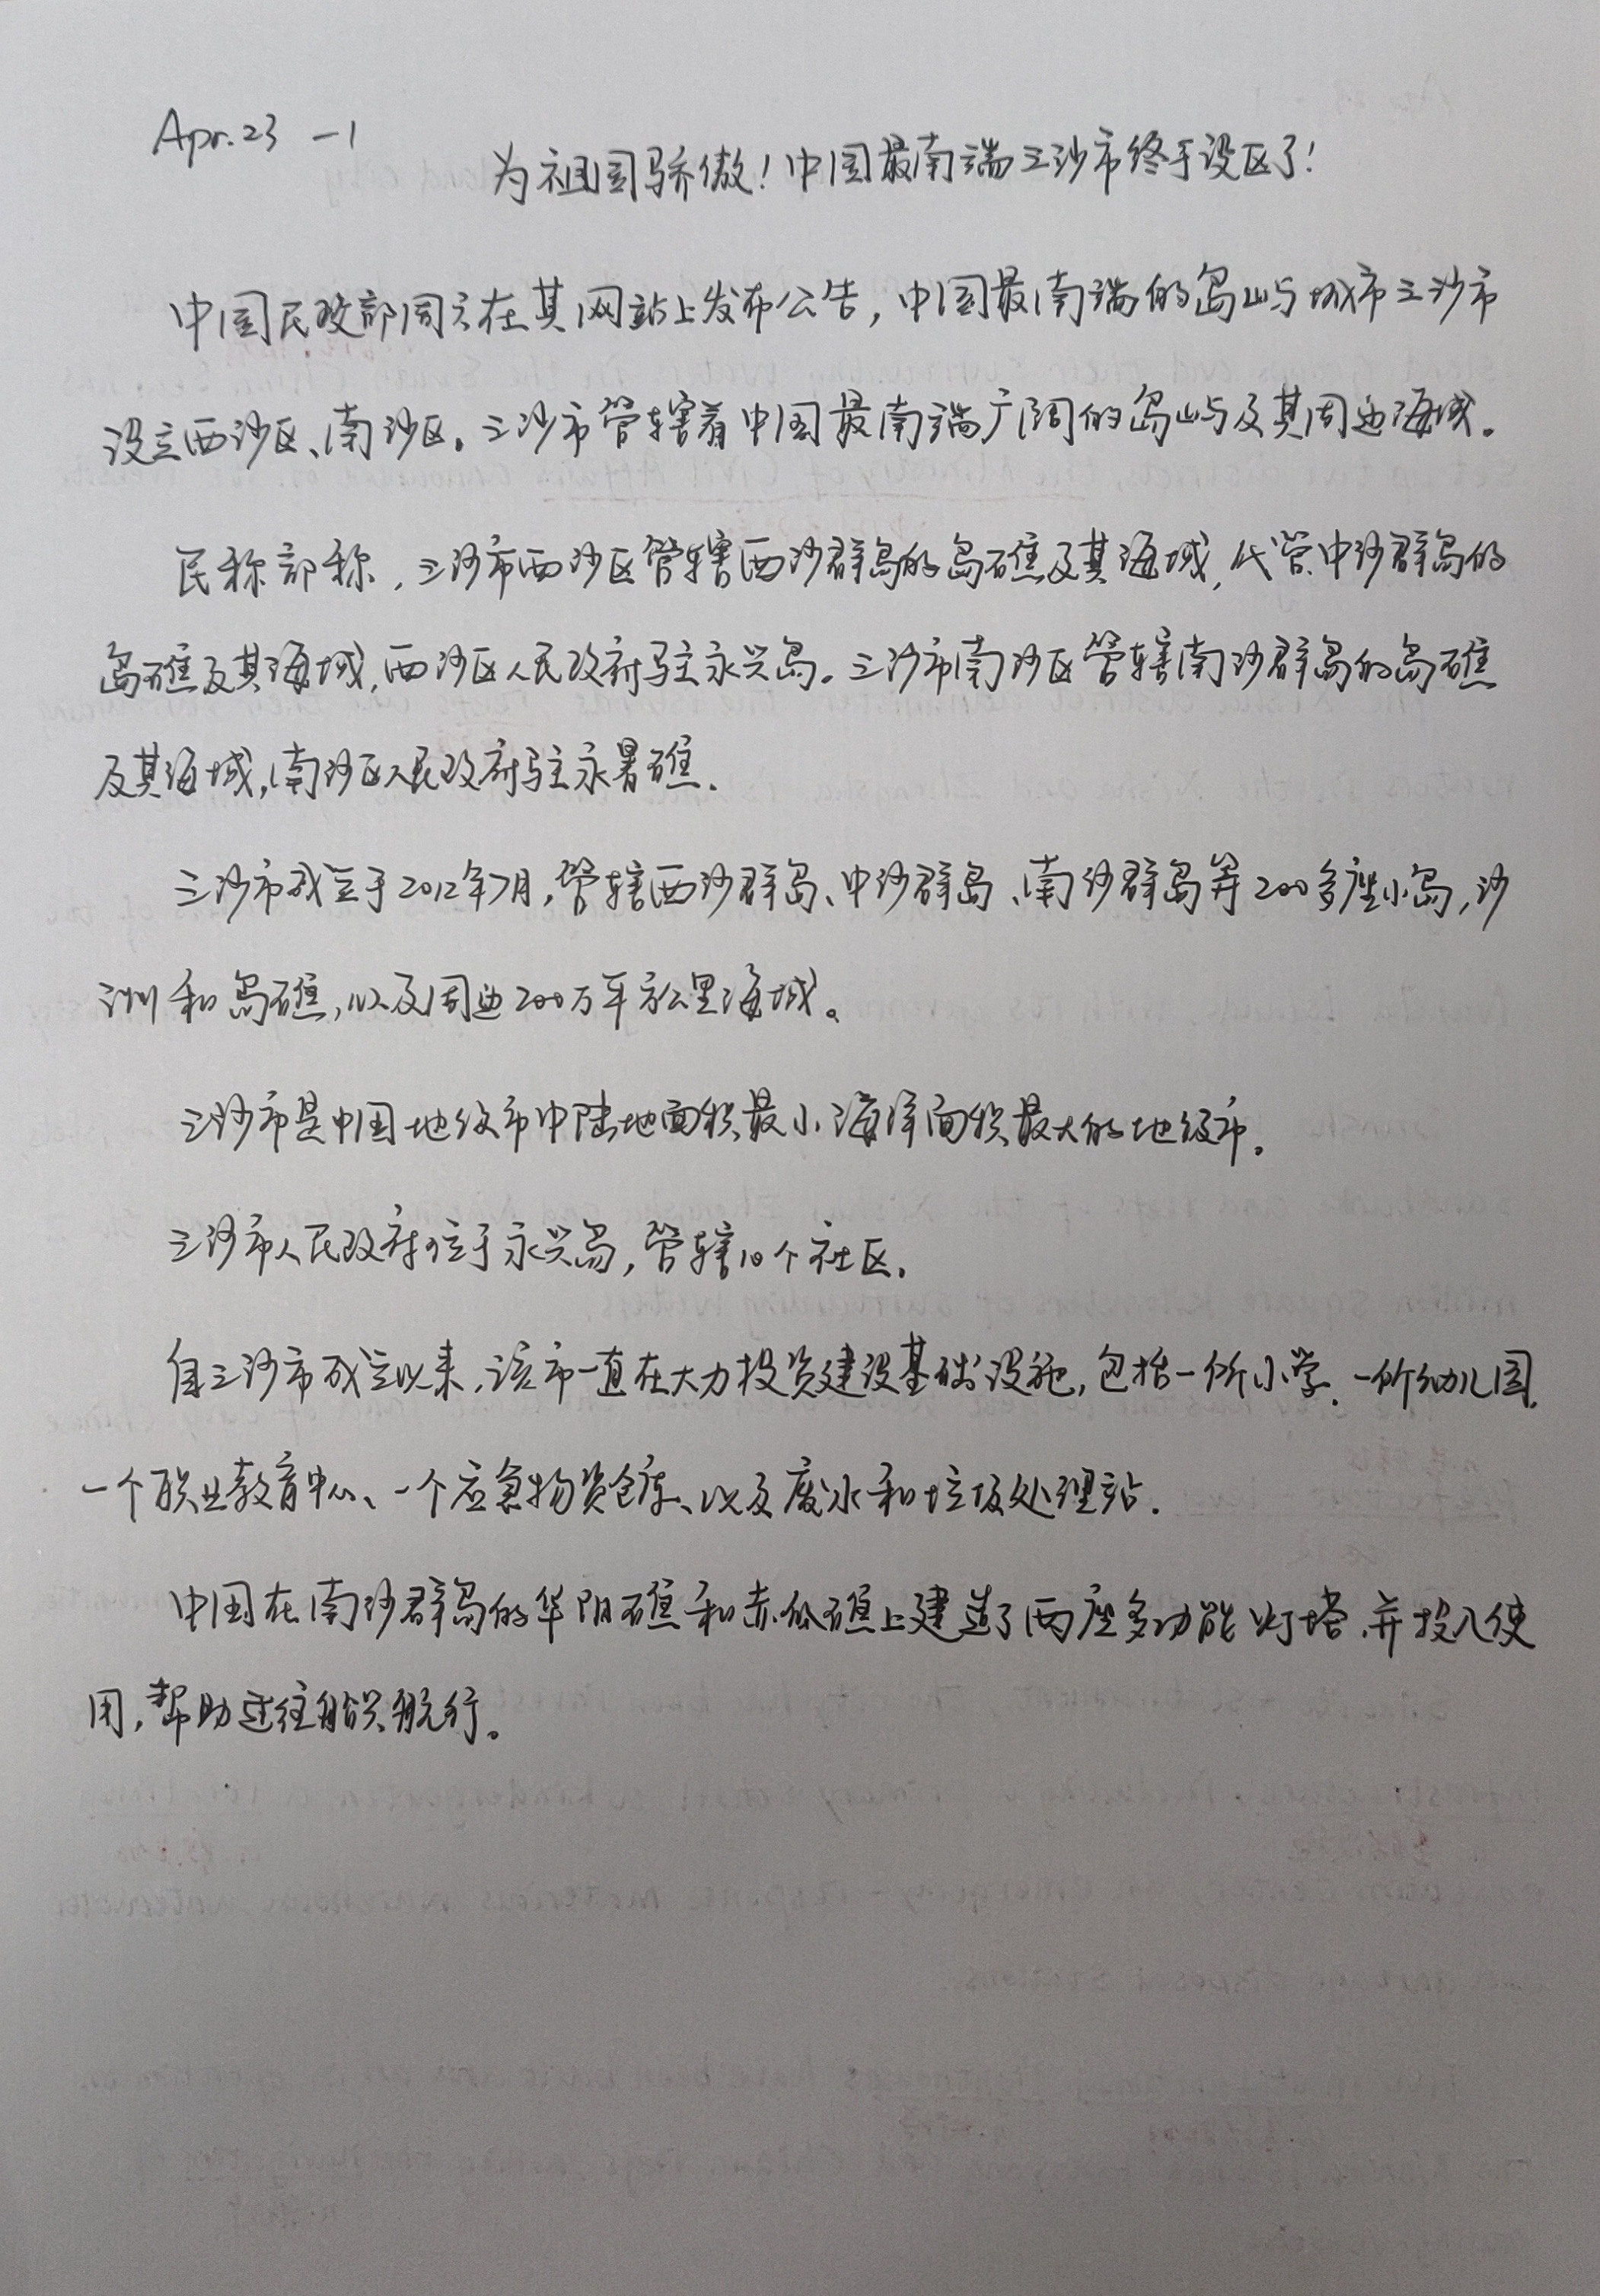 Apr.23 -1
为祖国骄傲！中国最南端三沙市终于设区了！
中国民政部周六在其网站上发布公告，中国最南端的岛屿城市三沙市
设立西沙区、南沙区。三沙市管辖着中国最南端广阔的岛屿及其周边海域。
民称部称，三沙市西沙区管辖西沙群岛的岛礁及其海域，代管中沙群岛的
岛礁及其海域，西沙区人民政府驻永兴岛。三沙市南沙区管辖南沙群岛的岛礁
及其海域，南沙区人民政府驻永暑礁.
三沙市成立于2012年7月，管辖西沙群岛、中沙群岛、南沙群岛等200多座小岛，沙
洲和岛礁，以及周边200万平方公里海域。
三沙市是中国地级市中陆地面积最小、海洋面积最大的地级市。
三沙市人民政府位于永兴岛，管辖10个社区.
自三沙市成立以来，该市一直在大力投资建设基础设施，包括一所小学、一所幼儿园、
一个职业教育中心、一个应急物资仓库、以及废水和垃圾处理站.
中国在南沙群岛的华阳礁和赤瓜礁上建造了两座多功能灯塔，并投入使
用，帮助过往船只航行。